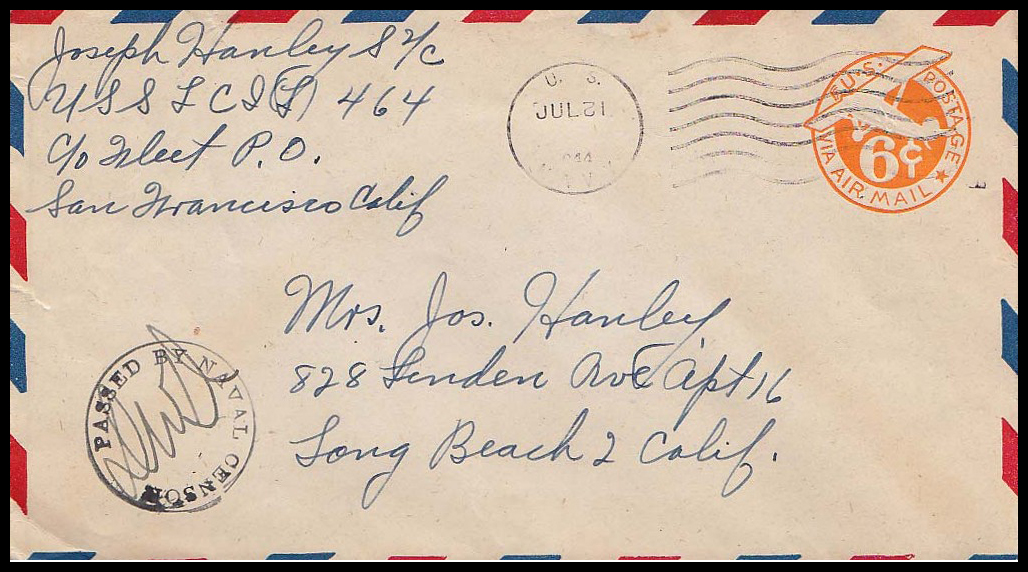 Joseph Hanley S 2/c
USS L C I (L) 464
c/o Fleet P.O.
San Francisco Calif
U. S.
JUL 21
U.S. POSTAGE
VIA AIR MAIL
6¢
Mrs. Jos. Hanley
828 Linden Ave Apt 16
Long Beach 2 Calif.
PASSED BY NAVAL CENSOR